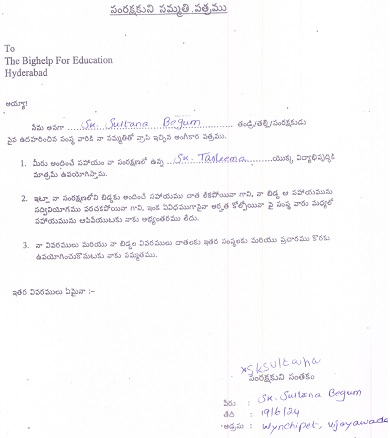 సంరక్షకుని సమ్మతి పత్రము
To
The Bighelp For Education
Hyderabad
అయ్యా!
నేను అనగా Sk. Sultana Begum తండ్రి/తల్లి/సంరక్షకుడు
పైన ఉదహరించిన సంస్థ వారికి నా సమ్మతితో వ్రాసి ఇచ్చిన అంగీకార పత్రము.
1. మీరు అందించే సహాయం నా సంరక్షణలో ఉన్న Sk. Tasleema యొక్క విద్యాభివృద్ధికి
మాత్రమే ఉపయోగిస్తాను.
2. ఇట్లా నా సంరక్షణలోని బిడ్డకు అందించే సహాయము దాత లేకపోయినా గాని, నా బిడ్డ ఆ సహాయమును
సద్వినియోగము పరచకపోయినా గాని, ఇంక ఏవిధముగానైనా అర్హత కోల్పోయినా పై సంస్థ వారు మధ్యలో
సహాయమును ఆపివేయుటకు నాకు అభ్యంతరము లేదు.
3. నా వివరములు మరియు నా బిడ్డల వివరములు దాతలకు ఇతర సంస్థలకు మరియు ప్రచారము కొరకు
ఉపయోగించుకొనుటకు నాకు సమ్మతము.
ఇతర వివరములు ఏమైనా :-
x SKSultana
సంరక్షకుని సంతకం
పేరు : Sk. Sultana Begum
తేది : 19/6/24
అడ్రసు : Wynchipet, Vijayawada